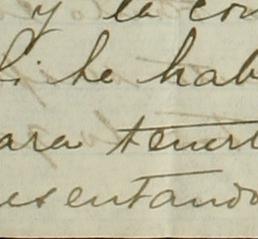 y la con
hi he hab
ara tenerl
esentando